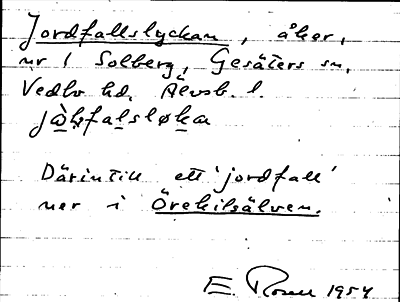 Jordfallslyckan, åker,
nr 1 Solberg, Gesäters sn,
Vedbo hd. Älvsb. l.
Därintill ett 'jordfall'
ner i Örekilsälven.
E. 1954